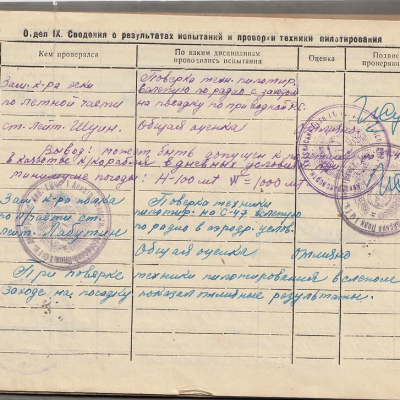 Отдел IX. Сведения о результатах испытаний и проверки техники пилотирования
Кем проверялся
По каким дисциплинам проводились испытания
Оценка
Подпись
Зам. к-ра эск
по летной части
ст. лейт. Шуин.
Поверка техн. пилотир.
вслепую по радио с заходом
на посадку по приводной Р.С.
Общая оценка
Вывод: может быть допущен к
в качестве к/корабля в дневных условиях
минимуме погоды: H-100 мт W = 1000 мт
Зам к-ра полка
по л/части ст.
лейт. Лабутин
Поверка техники
пилотир. на С-47 вслепую
по радио в условиях
Общая оценка
отлично
При поверке техники пилотирования в слепом
заходе на посадку показал отличные результаты.